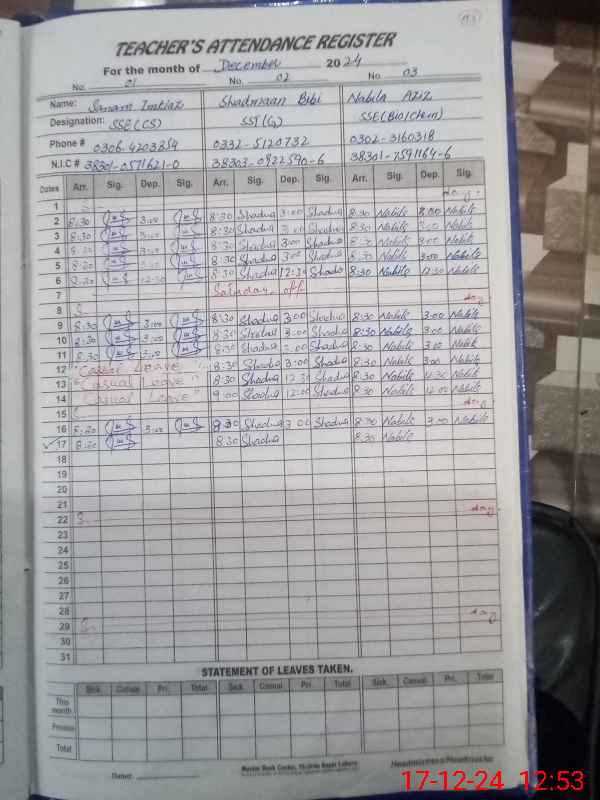 TEACHER'S ATTENDANCE REGISTER
For the month of December 2024
No. 01 No. 02 No. 03
Name: Sanam Imtiaz Shadmaan Bibi Nabila Aziz
Designation: SSE(CS) SST(G) SSE(Bio/Chem)
Phone # 0306-4203254 0332-5120732 0302-3160318
N.I.C # 38301-0571621-0 38303-0922590-6 38301-7591164-6
Dates Arr. Sig. Dep. Sig. Arr. Sig. Dep. Sig. Arr. Sig. Dep. Sig.
1 S day.
2 8:30 3:00 8:30 Shadua 3:00 Shadua 8:30 Nabila 3:00 Nabila
3 8:30 3:00 8:30 Shadua 3:00 Shadua 8:30 Nabila 3:00 Nabila
4 8:20 3:00 8:30 Shadua 3:00 Shadua 8:30 Nabila 3:00 Nabila
5 8:20 3:00 8:30 Shadua 3:00 Shadua 8:30 Nabila 3:00 Nabila
6 8:20 12:30 8:30 Shadua 12:30 Shadua 8:30 Nabila 12:30 Nabila
7 Saturday off
8 S day
9 8:30 3:00 8:30 Shadua 3:00 Shadua 8:30 Nabila 3:00 Nabila
10 8:30 3:00 8:30 Shadua 3:00 Shadua 8:30 Nabila 3:00 Nabila
11 8:30 3:00 8:30 Shadua 3:00 Shadua 8:30 Nabila 3:00 Nabila
12 "Casual Leave" 8:30 Shadua 3:00 Shadua 8:30 Nabila 3:00 Nabila
13 "Casual Leave" 8:30 Shadua 12:30 Shadua 8:30 Nabila 12:30 Nabila
14 "Casual Leave" 9:00 Shadua 12:00 Shadua 8:30 Nabila 12:00 Nabila
15 S day
16 8:20 3:00 8:30 Shadua 3:00 Shadua 8:30 Nabila 3:00 Nabila
17 8:20 8:30 Shadua 8:30 Nabila
18
19
20
21
22 S day
23
24
25
26
27
28
29 S day
30
31
STATEMENT OF LEAVES TAKEN.
Sick. Casual Pri. Total Sick. Casual Pri. Total Sick. Casual. Pri. Total
This month
Previous
Total
Dated:
Headmaster/Headmistress
17-12-24 12:53